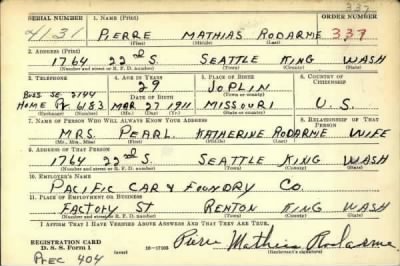 337
SERIAL NUMBER 1. NAME (Print) ORDER NUMBER
4131 PIERRE MATHIAS RODARME 337
(First) (Middle) (Last)
2. ADDRESS (Print)
1764 22nd S. SEATTLE KING WASH
(Number and street or R. F. D. number) (Town) (County) (State)
3. TELEPHONE 4. AGE IN YEARS 5. PLACE OF BIRTH 6. COUNTRY OF CITIZENSHIP
29 JOPLIN
BUSS SE 2144 DATE OF BIRTH (Town or county)
HOME PR 6183 MAR 27 1911 MISSOURI U.S.
(Exchange) (Number) (Mo.) (Day) (Yr.) (State or country)
7. NAME OF PERSON WHO WILL ALWAYS KNOW YOUR ADDRESS 8. RELATIONSHIP OF THAT PERSON
MRS. PEARL KATHERINE RODARME WIFE
(Mr., Mrs., Miss) (First) (Middle) (Last)
9. ADDRESS OF THAT PERSON
1764 22nd S. SEATTLE KING WASH
(Number and street or R. F. D. number) (Town) (County) (State)
10. EMPLOYER'S NAME
PACIFIC CAR & FOUNDRY CO.
11. PLACE OF EMPLOYMENT OR BUSINESS
FACTORY ST RENTON KING WASH
(Number and street or R. F. D. number) (Town) (County) (State)
I AFFIRM THAT I HAVE VERIFIED ABOVE ANSWERS AND THAT THEY ARE TRUE.
REGISTRATION CARD
D. S. S. Form 1 (over) 16—17105 Pierre Mathias Rodarme
(Registrant's signature)
PREC 404